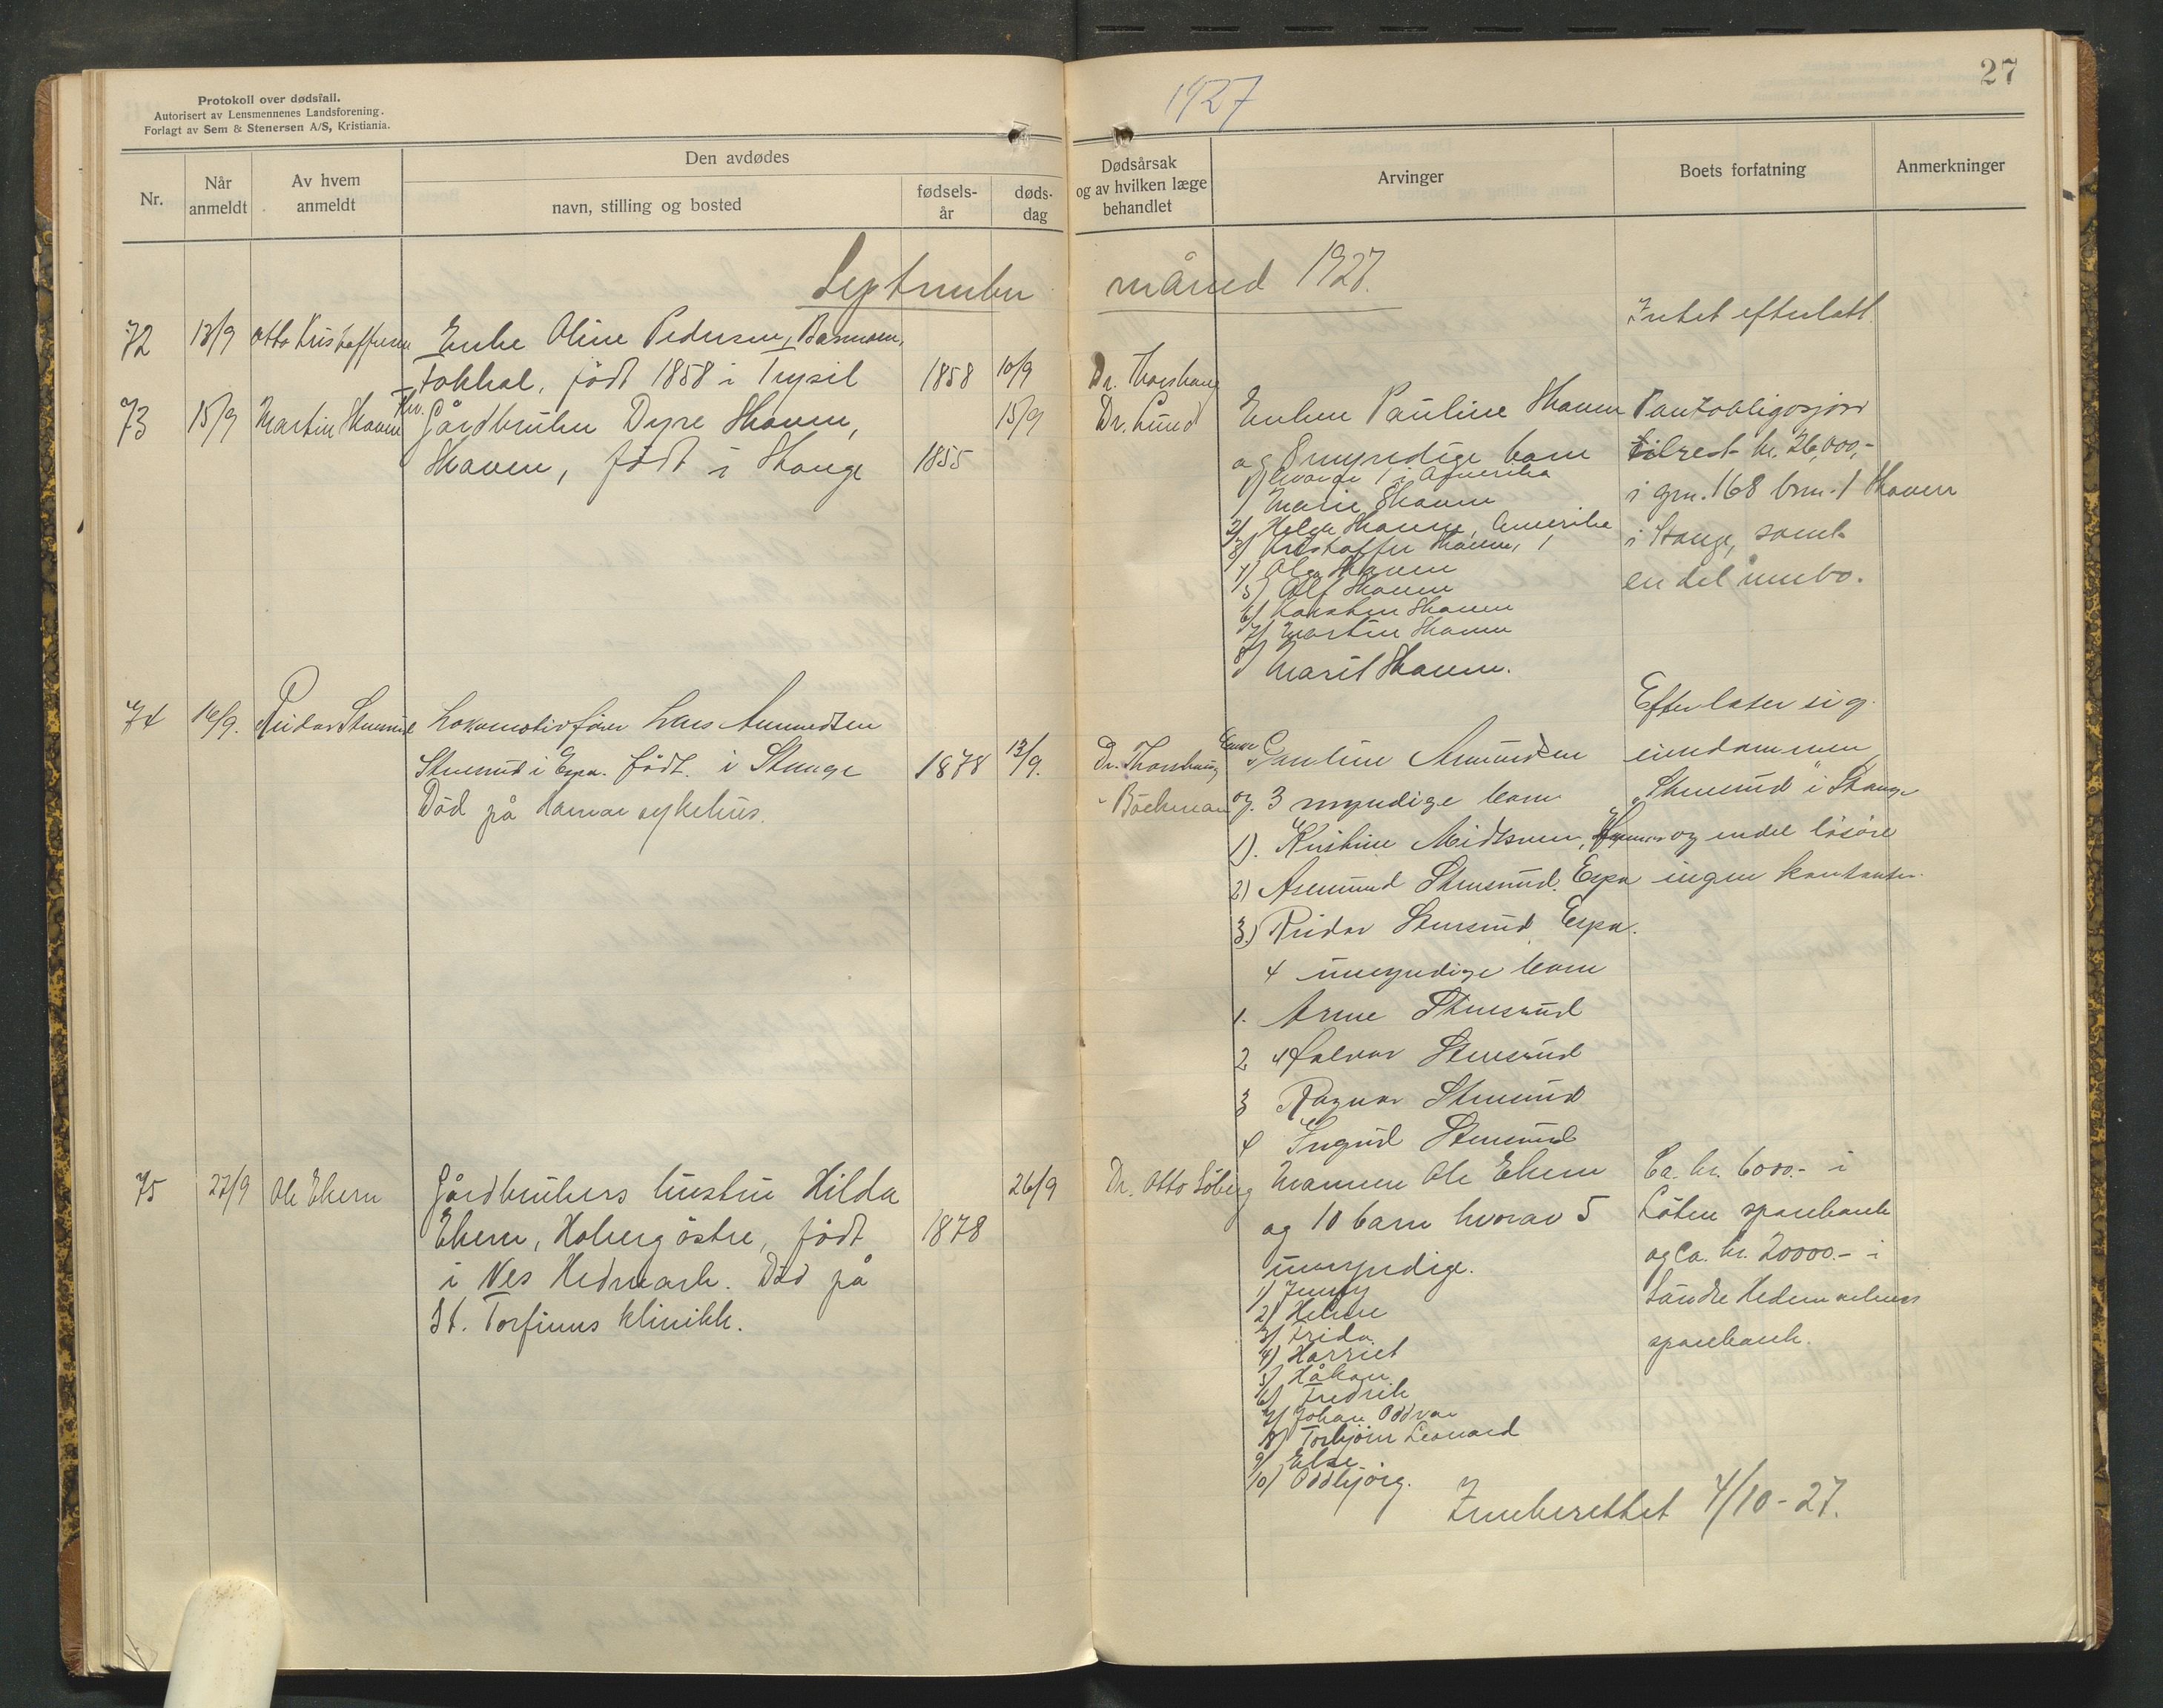 Protokoll over dødsfall.
Autorisert av Lensmennenes Landsforening.
Forlagt av Sem & Stenersen A/S, Kristiania.
1927
27
Nr.
Når anmeldt
Av hvem anmeldt
Den avdødes
navn, stilling og bosted
fødsels-år
døds-dag
Dødsårsak og av hvilken læge behandlet
Arvinger
Boets forfatning
Anmerkninger
September måned 1927.
72 13/9 Otto Kristoffersen Enke Oline Pedersen,
Fokhol, født 1858 i Trysil 1858 10/9 Dr. Thorshaug
Intet efterlatt.
73 15/9 Martin Skaven Gårdbruker Dyre Skaven, 15/9 Dr. Lund
Skaven, født i Stange 1855
Enken Pauline Skaven
og 8 myndige barn
hvorav 1 i Amerika
1) Marie Skaven
2) Helga Skaven, Amerika
3) Kristoffer Skaven
4) Olga Skaven
5) Alf Skaven
6) Karsten Skaven
7) Martin Skaven
8) Marit Skaven.
Pantobligasjon
tilrest kr. 26,000,-
i grn. 168 brn. 1 Skaven
i Stange, samt
en del innbo.
74 16/9. Reidar Stensrud Lokomotivfører Lars Amundsen
Stensrud i Espa. født i Stange 1878 13/9. Dr. Thorshaug
Død på Hamar sykehus.
" Bøckman
Enke Pauline Amundsen
og 3 myndige barn
1). Kristine Midtsveen, Hamar
2) Asmund Stensrud. Espa
3.) Reidar Stensrud Espa.
4 umyndige barn
1. Arne Stensrud
2 Halvor Stensrud
3 Ragnar Stensrud
4 Ingrid Stensrud
Efterlater sig
eiendommen
"Stensrud" i Stange
og endel løsøre
ingen kontanter.
75 27/9 Ole Ekern Gårdbrukers hustru Hilda 26/9 Dr. Otto Løberg
Ekern, Hoberg østre, født 1878
i Nes Hedmark. Død på
St. Torfinns klinikk.
Mannen Ole Ekern
og 10 barn hvorav 5
umyndige.
1) Jenny
2) Helene
3) Frida
4) Harriet
5) Håkon
6) Fredrik
7) Johan Oddvar
8) Torbjørn Leonard
9) Else
10) Oddbjørg.
Ca. kr. 6000.- i
Løten sparebank
og ca. kr. 20000.- i
Søndre Hedemarkens
sparebank.
Innberettet 4/10-27.